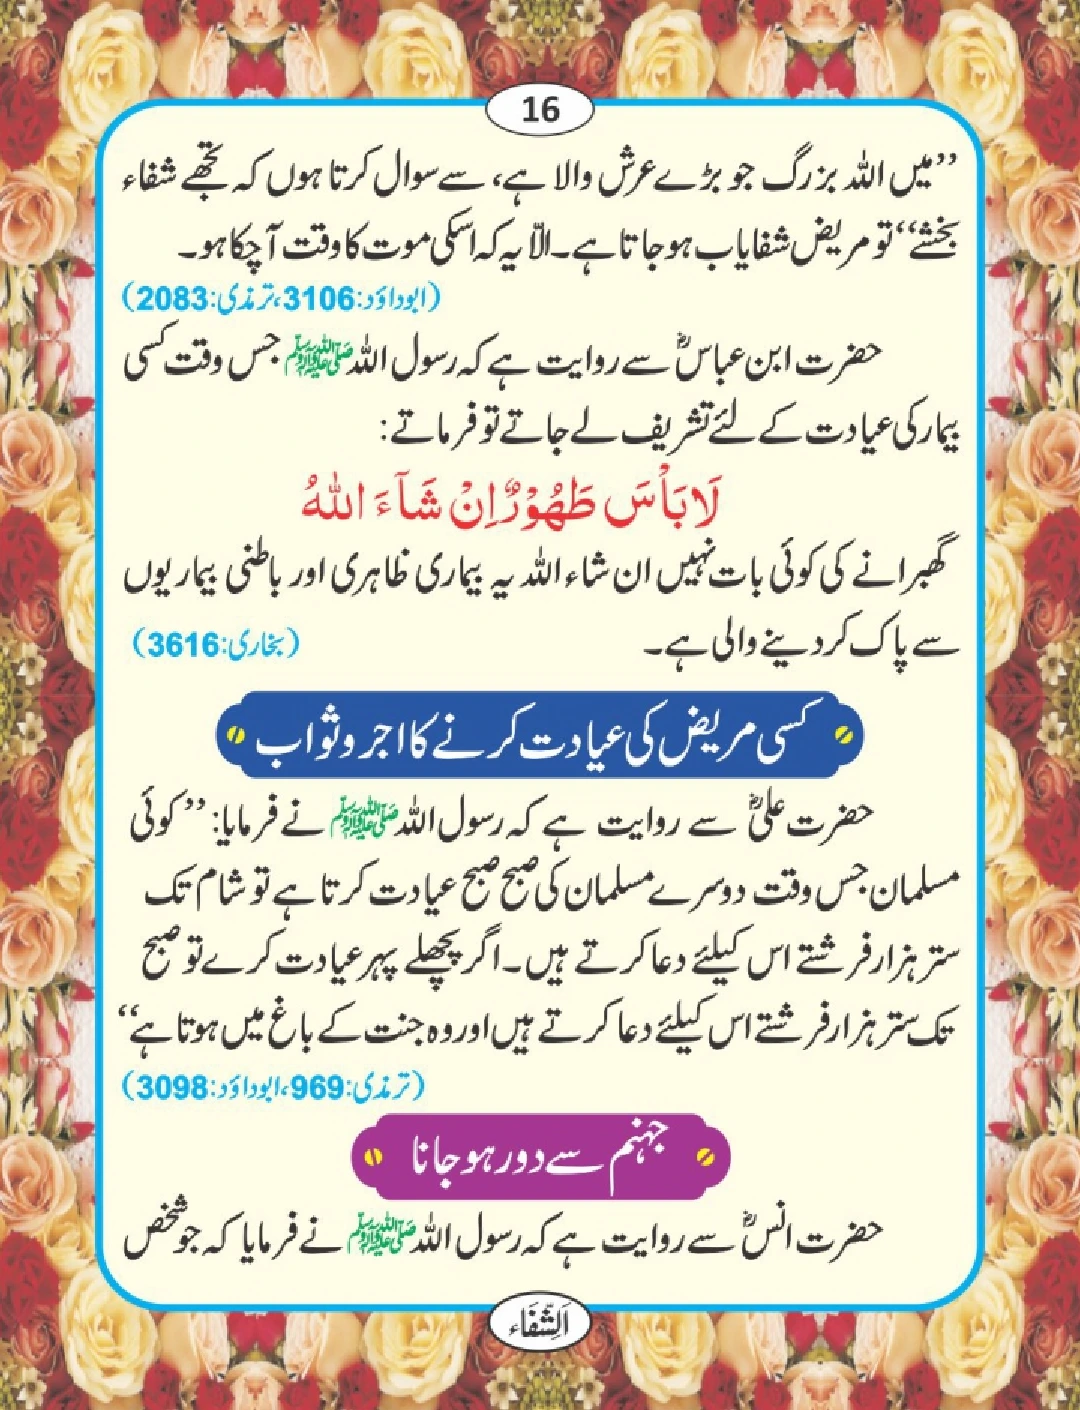 16
’’میں اللہ بزرگ جو بڑے عرش والا ہے، سے سوال کرتا ہوں کہ تجھے شفاء
بخشے‘‘ تو مریض شفایاب ہوجاتا ہے۔ الّا یہ کہ اسکی موت کا وقت آچکا ہو۔
(ابوداؤد:3106، ترمذی:2083)
حضرت ابن عباسؓ سے روایت ہے کہ رسول اللہ ﷺ جس وقت کسی
بیمار کی عیادت کے لئے تشریف لے جاتے تو فرماتے:
لَا بَاْسَ طَهُوْرٌ اِنْ شَآءَ اللهُ
گھبرانے کی کوئی بات نہیں ان شاء اللہ یہ بیماری ظاہری اور باطنی بیماریوں
سے پاک کردینے والی ہے۔ (بخاری:3616)
کسی مریض کی عیادت کرنے کا اجر و ثواب
حضرت علیؓ سے روایت ہے کہ رسول اللہ ﷺ نے فرمایا: ’’کوئی
مسلمان جس وقت دوسرے مسلمان کی صبح صبح عیادت کرتا ہے تو شام تک
ستر ہزار فرشتے اس کیلئے دعا کرتے ہیں۔ اگر پچھلے پہر عیادت کرے تو صبح
تک ستر ہزار فرشتے اس کیلئے دعا کرتے ہیں اور وہ جنت کے باغ میں ہوتا ہے‘‘
(ترمذی:969، ابوداؤد:3098)
جہنم سے دور ہوجانا
حضرت انسؓ سے روایت ہے کہ رسول اللہ ﷺ نے فرمایا کہ جو شخص
اَلشِّفَاء